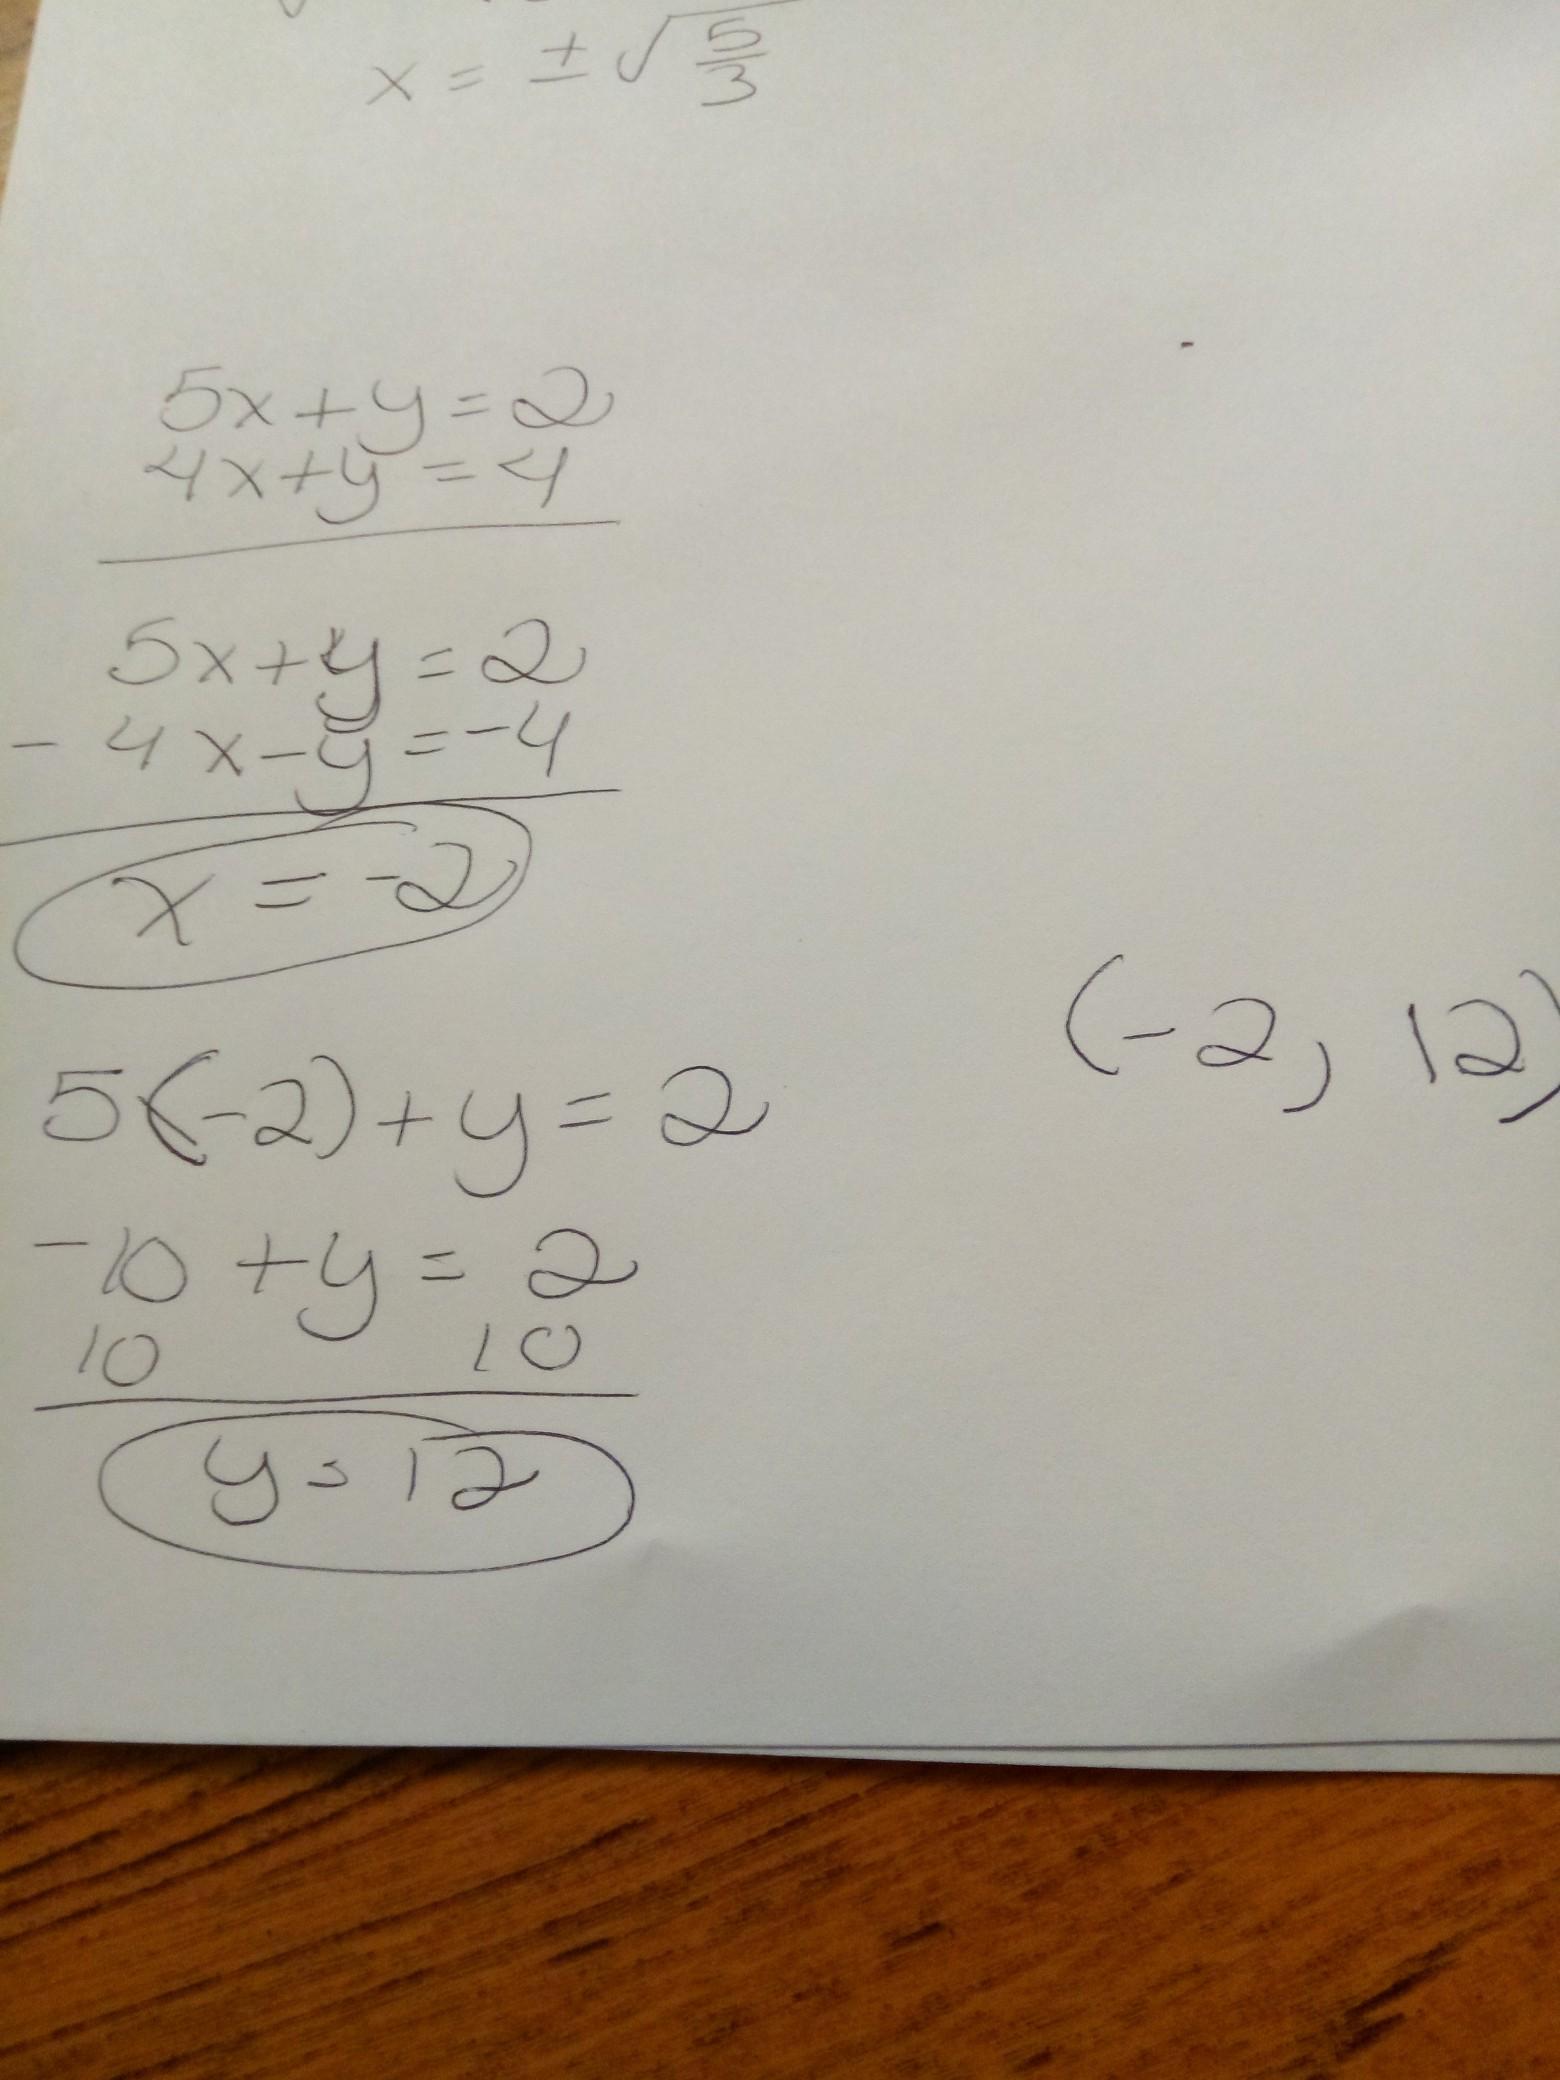 x = ±√5/3
5x+y=2
4x+y=4
5x+y=2
-4x-y=-4
x=-2
5(-2)+y=2
(-2, 12)
-10+y=2
10 10
y=12